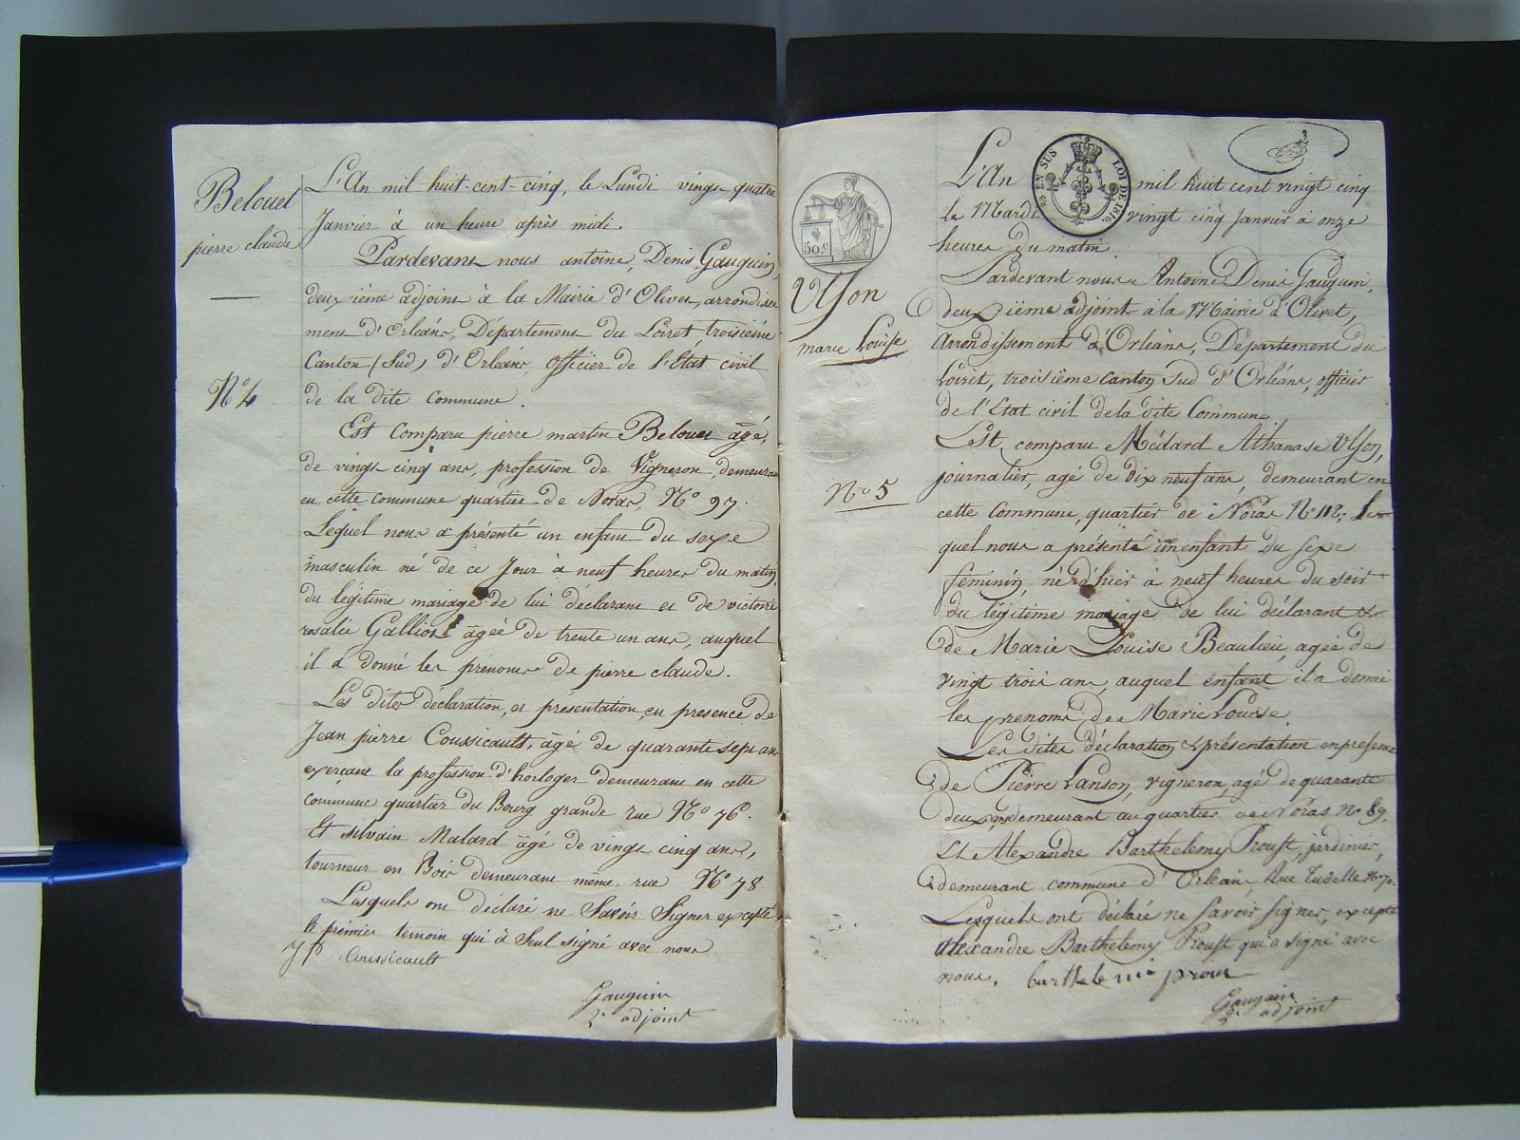 Belouet
pierre claude
N° 4
L'An mil huit-cent-cinq, le Lundi vingt quatre
Janvier à un heure après midi.
Pardevant nous antoine, Denis Gauguin,
deuxième adjoint à la Mairie d'Olivet, arrondisse
ment d'Orleans, Département du Loiret troisième
Canton (Sud) d'Orléans, officier de l'État civil
de la dite commune.
Est Comparu pierre martin Belouet âgé,
de vingt cinq ans, profession de Vigneron, demeurant
en cette commune quartier de Noras, N° 97.
Lequel nous a présenté un enfant du sexe
masculin né de ce Jour à neuf heures du matin,
du légitime mariage de lui declarant et de victoire
rosalie Galliot âgée de trente un ans, auquel
il a donné les prénoms de pierre claude.
Les dites déclaration, et presentation, en presence de
Jean pierre Coussicault, âgé de quarante sept ans
exerçant la profession d'horloger demeurant en cette
commune quartier du Bourg grande rue N° 76.
Et silvain Malard âgé de vingt cinq ans,
tourneur en Bois demeurant même rue N° 78
Lesquels ont declaré ne Savoir Signer excepté
le premier temoin qui à Seul signé avec nous
JP Coussicault
Gauguin
2e adjoint
50 c
Ulson
marie Louise
N° 5
EN SUS
LOI DE 1816
L'An mil huit cent vingt cinq
le Mardi vingt cinq Janvier à onze
heures du matin.
Pardevant nous Antoine Denis Gauguin,
deuxiième adjoint à la Mairie d'Olivet,
Arrondissement d'Orléans, Departement du
Loiret, troisième canton Sud d'Orléans, officier
de l'Etat civil de la dite Commune
Est comparu Médard Athanase Ulson,
journalier, agé de dix neuf ans, demeurant en
cette Commune, quartier de Noras N° 112, Le
quel nous a présenté un enfant du sexe
féminin, né d'hier à neuf heures du soir
du légitime mariage de lui déclarant et
de Marie Louise Beaulieu, agée de
vingt trois ans, auquel enfant il a donné
les prenoms de Marie Louise.
Les dites déclaration et présentation en presence
de Pierre Lanson, vigneron, agé de quarante
deux ans demeurant au quartier de Noras N° 89,
Et Alexandre Barthelemy Proust, jardinier,
demeurant commune d'Orleans, Rue Tudelle N° 70.
Lesquels ont déclaré ne Savoir signer, excepté
Alexandre Barthelemy Proust qui a signé avec
nous. barthele mi prout
Gauguin
2e adjoint